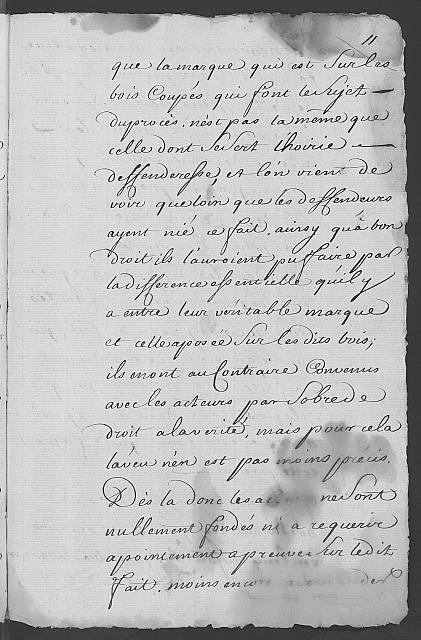 11
que la marque qui est sur les
bois coupés qui font le sujet
du procès. n'est pas la même que
celle dont se sert l'hoirie
deffenderesse, et l'on vient de
voir que loin que les deffendeurs
ayent nié ce fait, ainsy qu'à bon
droit ils l'auroient pu faire par
la difference essentielle qu'il y
a entre leur véritable marque
et celle aposée sur les dits bois;
ils en ont au contraire convenus
avec les acteurs par
droit a la verité, mais pour cela
l'aveu n'en est pas moins précis.
Dès la donc les ne sont
nullement fondés ni a requerir
apointement a preuver sur le dit
fait, moins encore a demander